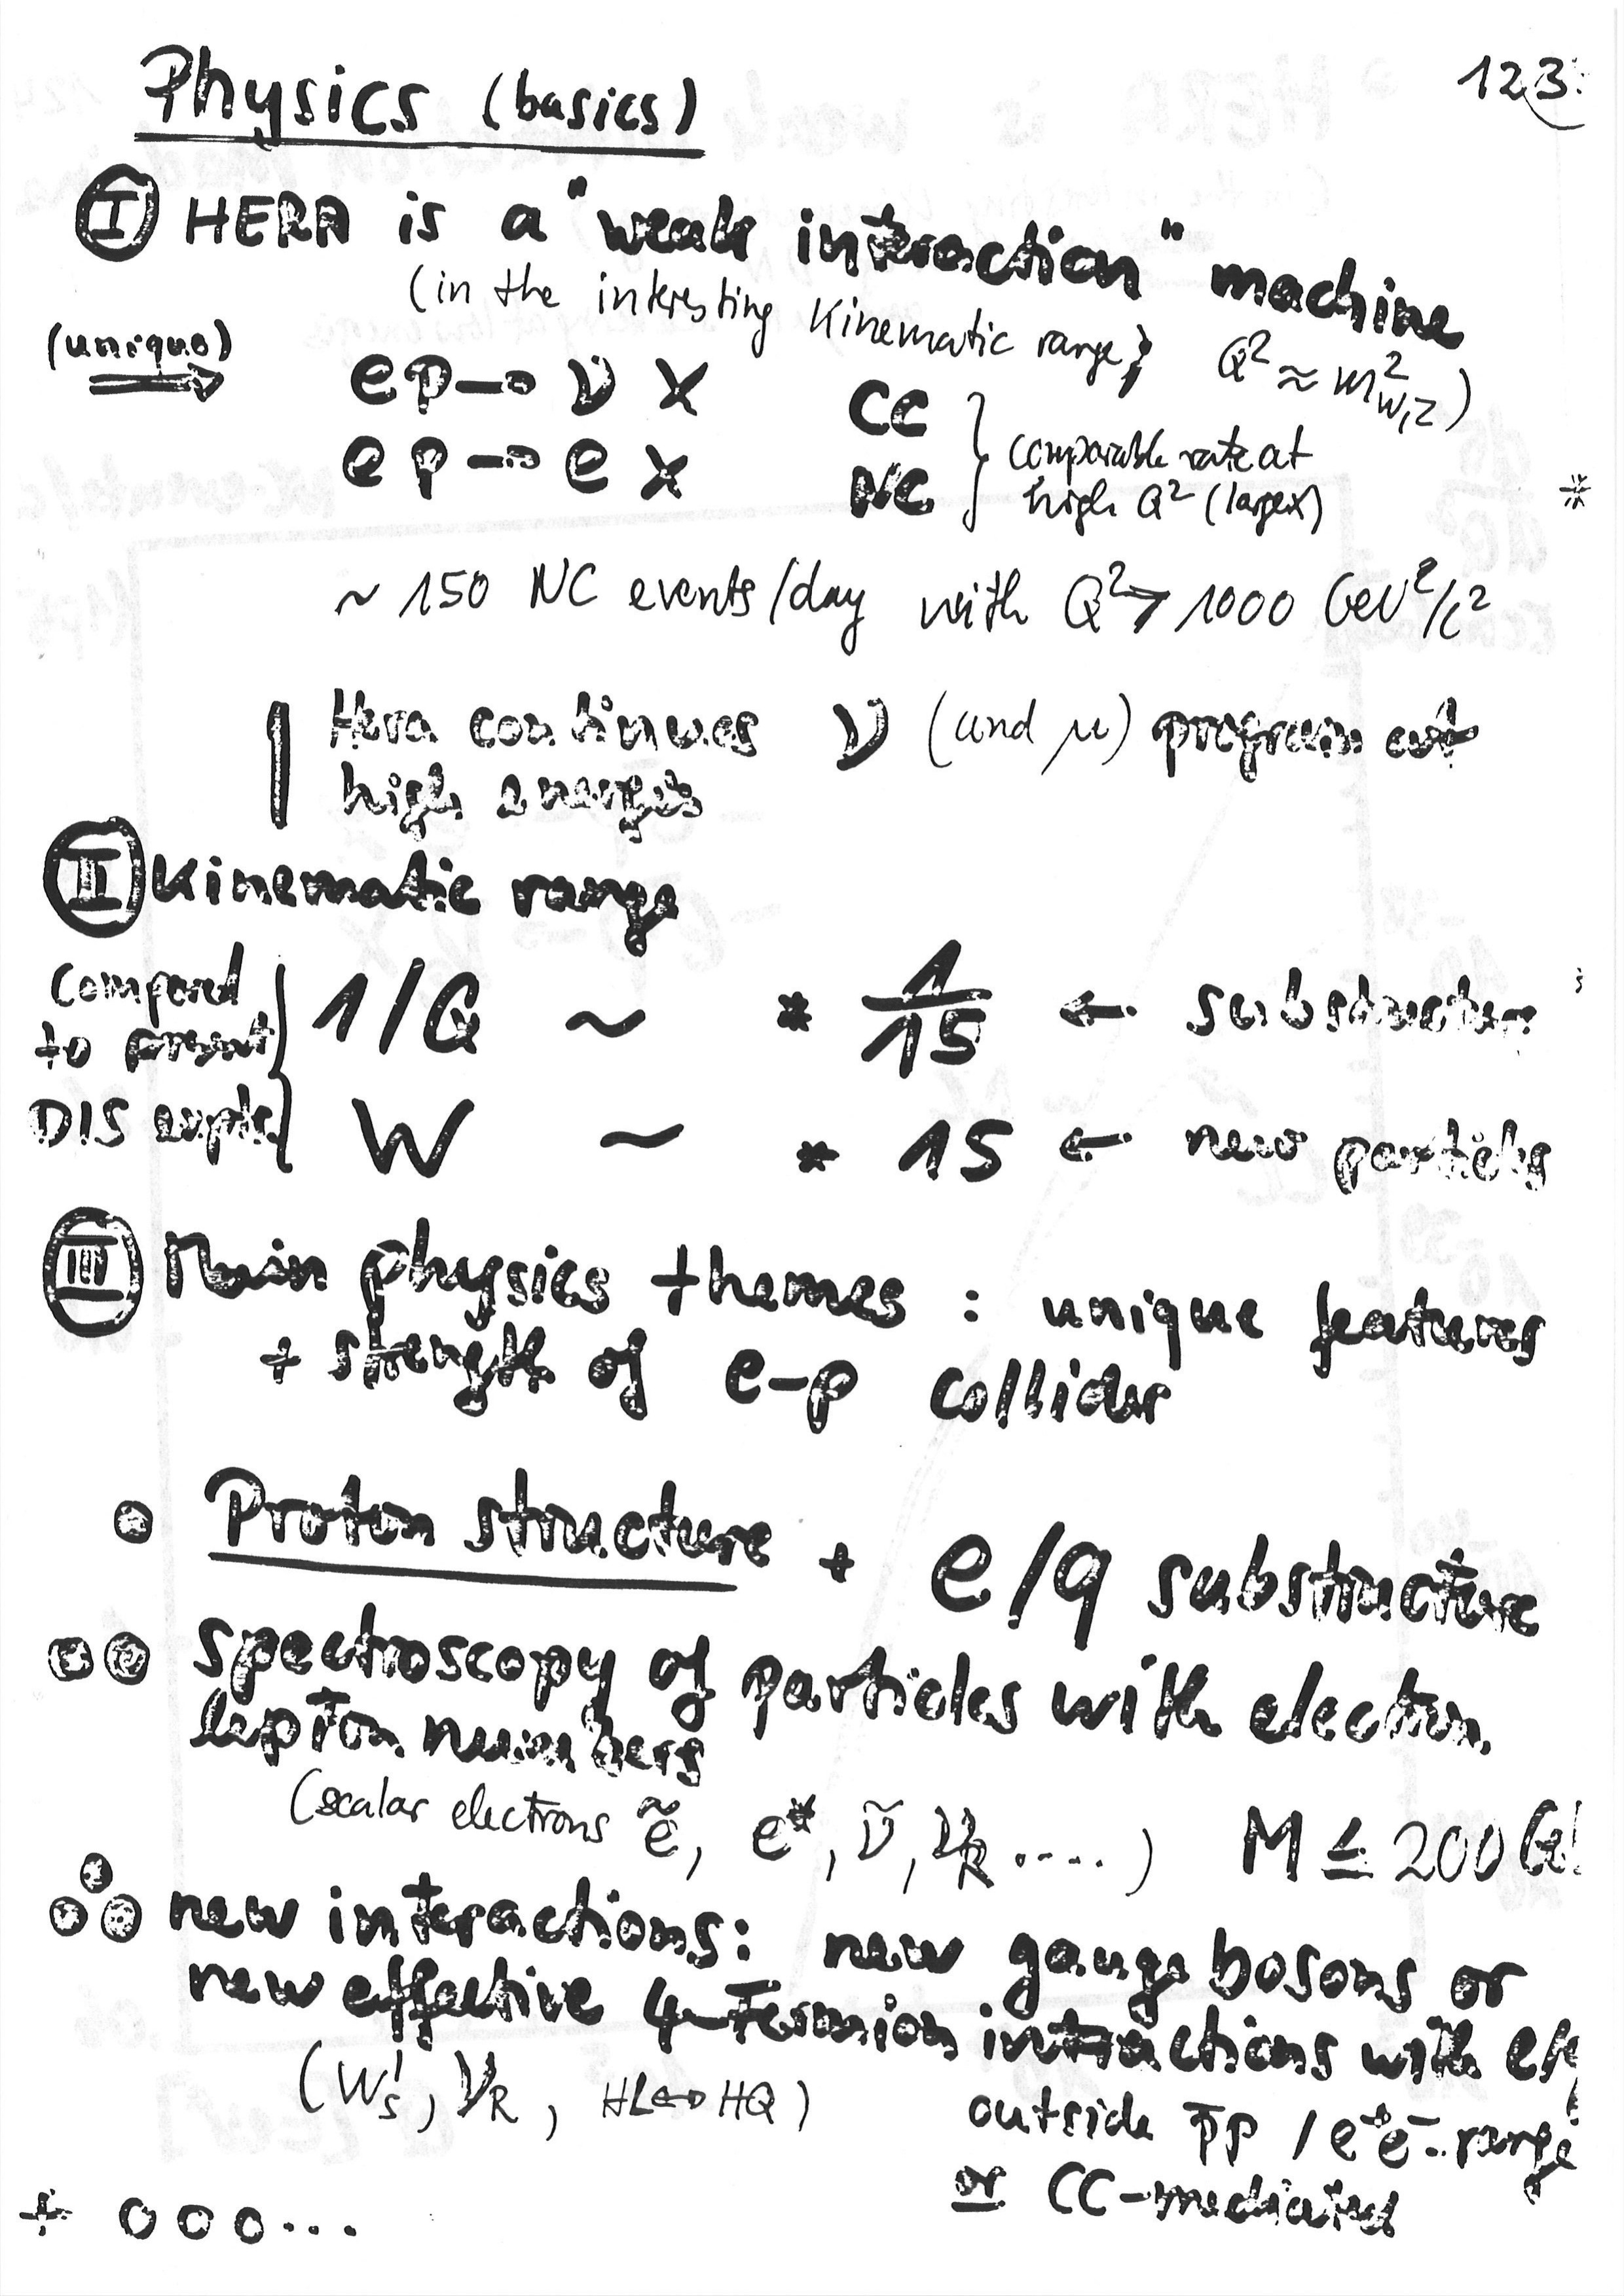 Physics (basics)
123
I HERA is a "weak interaction" machine
(in the interesting kinematic range, Q² ≈ m²W,Z)
(unique) ⟹ ep → ν X CC } comparable rate at
ep → e X NC } high Q² (large x)
*
~ 150 NC events/day with Q² > 1000 GeV²/c²
Hera continues ν (and μ) program at
high energies
II Kinematic range
compared } 1/Q ~ * 1/15 ← substructure
to present
DIS expts } W ~ * 15 ← new particles
III Main physics themes : unique features
+ strength of e-p collider
o Proton structure + e/q substructure
oo spectroscopy of particles with electron
lepton numbers
(scalar electrons ẽ, e*, ν̃, νR ....) M ≤ 200 Ge
ooo new interactions: new gauge bosons or
new effective 4-Fermion interactions with eq
(W's, νR, HL↔HQ)
outside p̄p / e⁺e⁻-range
or CC-mediated
+ ooo...